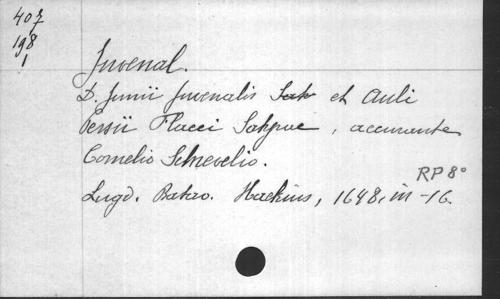 407
198
1
Juvenal.
D. Junii Juvenalis Sat et Auli
Persii Flacci Satyrae, accurante
Cornelio Schrevelio.
RP 8°
Lugd. Batav. Hackius, 1648, in-16.